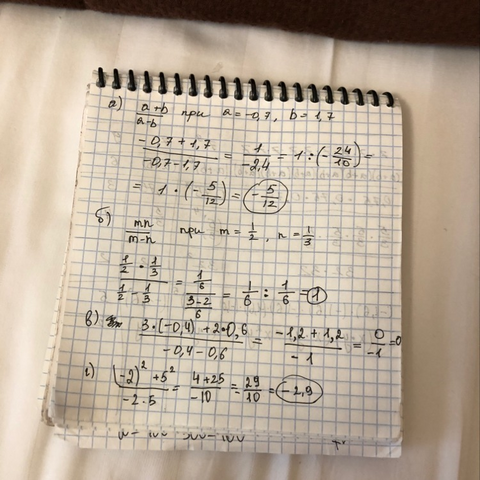 а) (a+b)/(a-b) при a=-0,7, b=1,7
(-0,7+1,7)/(-0,7-1,7) = 1/-2,4 = 1:(-24/10) =
= 1·(-5/12) = -5/12
б) mn/(m-n) при m=1/2, n=1/3
(1/2·1/3)/(1/2-1/3) = (1/6)/((3-2)/6) = 1/6 : 1/6 = 1
в) (3·(-0,4)+2·0,6)/(-0,4-0,6) = (-1,2+1,2)/-1 = 0/-1 = 0
г) ((-2)²+5²)/(-2·5) = (4+25)/-10 = 29/10 = -2,9